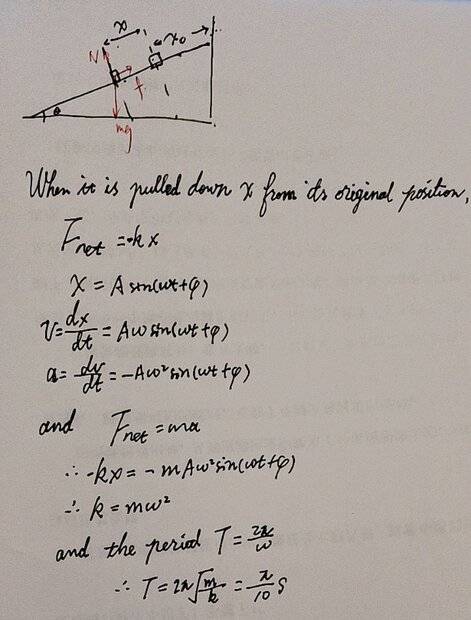 x
x₀
N
f
θ
mg
When it is pulled down x from its original position,
F_net = -kx
x = A sin(ωt+φ)
v = dx/dt = Aω sin(ωt+φ)
a = dv/dt = -Aω² sin(ωt+φ)
and F_net = ma
∴ -kx = -mAω² sin(ωt+φ)
∴ k = mω²
and the period T = 2π/ω
∴ T = 2π√(m/k) = π/10 s